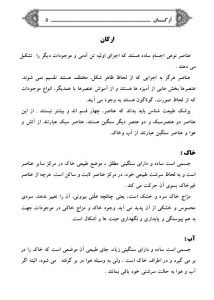 ارکان ۵
ارکان
عناصر نوعی اجسام ساده هستند که اجزای اولیه تن آدمی و موجودات دیگر را تشکیل
می دهند.
عناصر هرگز به اجزایی که از لحاظ ظاهر شکل، مختلف هستند تقسیم نمی شوند.
عنصرها بخش هایی از آمیزه ها هستند و از آمیزش عنصرها با همدیگر، انواع موجودات
که از لحاظ صورت، گوناگون هستند به وجود می آیند.
پزشک طبیعت شناس باید بداند که عناصر، چهار قسم اند و بیشتر نیستند. از این
عناصر دو عنصر سبک و دو عنصر دیگر سنگین هستند. عناصر سبک عبارتند از آتش و
هوا و عناصر سنگین عبارتند از آب و خاک.
خاک :
جسمی است ساده و دارای سنگینی مطلق، موضع طبیعی خاک در مرکز سایر عناصر
است و به لحاظ سرشت طبیعی خود، در مرکز عناصر ثابت و ساکن است. هرچه از عناصر
غیرخاک بسوی آن حرکت می کند.
مزاج خاک، سرد و خشک است، یعنی چنانچه علتی بیرونی، آن را تغییر ندهد، سردی
محسوس و خشکی از آن پدید می آید. وجود خاک و مزاج خاکی در موجودات جهت
به هم پیوستگی و پایداری و نگهداری هیئت ها و اشکال است.
آب :
جسمی است ساده و دارای سنگینی زیاد. جای طبیعی آن موضعی است که خاک را در
بر می گیرد و در اطراف خاک است، ولی به وسیله هوا در بر گرفته می شود، البته اگر
آب و هوا به حالت سرشتی خود باقی بمانند.